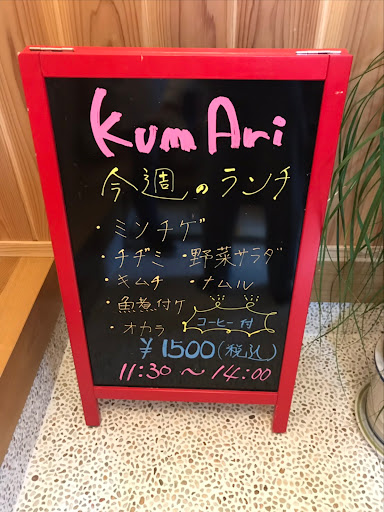 Kum Ari
今週のランチ
・ミンチゲ
・チヂミ ・野菜サラダ
・キムチ ・ナムル
・魚煮付ケ
・オカラ コーヒー付
¥1500(税込)
11:30〜14:00